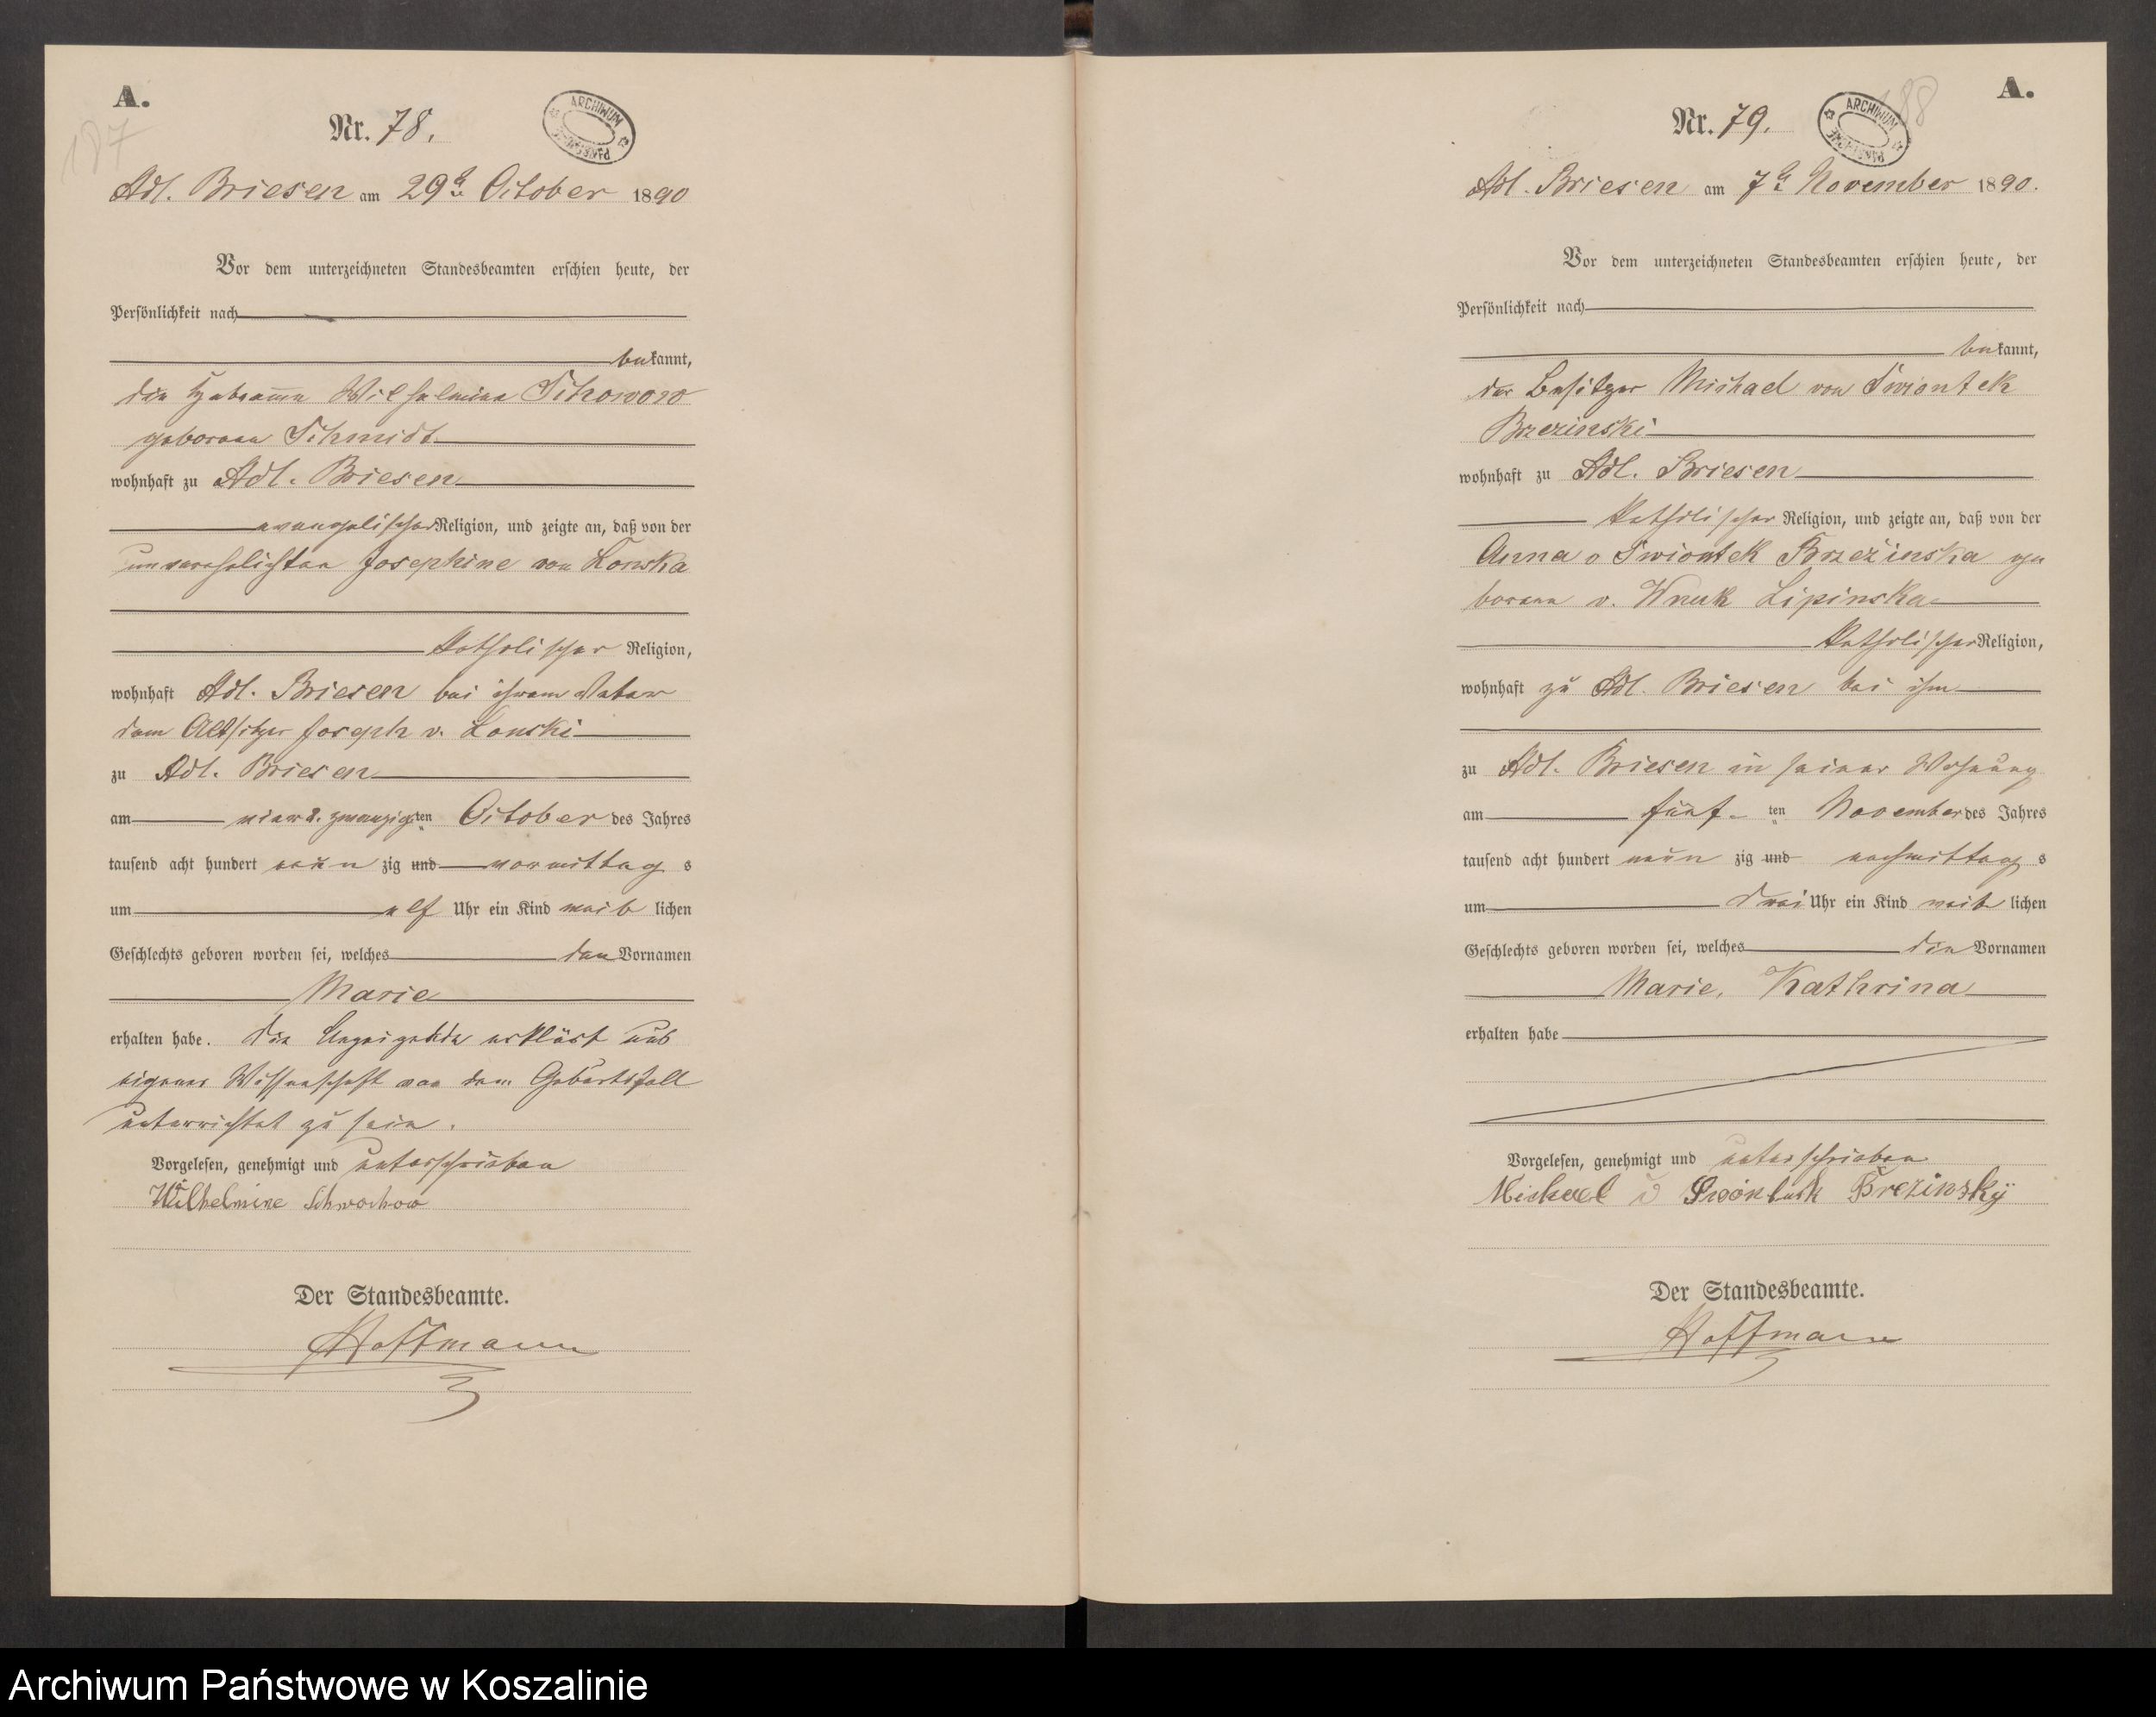 A.
187
Nr. 78.
ARCHIWUM PAŃSTWOWE
Adl. Briesen am 29t October 1890
Vor dem unterzeichneten Standesbeamten erschien heute, der
Persönlichkeit nach
bekannt,
die Hebamme Wilhelmine
geborene Schmidt
wohnhaft zu Adl. Briesen
evangelischer Religion, und zeigte an, daß von der
unverehelichten Josephine von Lonska
katholischer Religion,
wohnhaft Adl. Briesen bei ihrem Vater
dem Altsitzer Joseph v. Lonski
zu Adl. Briesen
am vier u. zwanzigsten October des Jahres
tausend acht hundert neun zig und vormittag s
um elf Uhr ein Kind weib lichen
Geschlechts geboren worden sei, welches den Vornamen
Marie
erhalten habe. Die Anzeigende erklärt aus
eigener Wissenschaft von dem Geburtsfall
unterrichtet zu sein.
Vorgelesen, genehmigt und unterschrieben
Wilhelmine Schwochow
Der Standesbeamte.
Hoffmann
A.
188
Nr. 79.
ARCHIWUM PAŃSTWOWE
Adl. Briesen am 7t November 1890.
Vor dem unterzeichneten Standesbeamten erschien heute, der
Persönlichkeit nach
bekannt,
der Besitzer Michael von Swiontek
Brzezinski
wohnhaft zu Adl. Briesen
katholischer Religion, und zeigte an, daß von der
Anna v Swiontek Brzezinska ge
borene v. Wnuk Lipinska
katholischer Religion,
wohnhaft zu Adl. Briesen bei ihm
zu Adl. Briesen in seiner Wohnung
am fünf ten November des Jahres
tausend acht hundert neun zig und nachmittag s
um drei Uhr ein Kind weib lichen
Geschlechts geboren worden sei, welches die Vornamen
Marie, Kathrina
erhalten habe
Vorgelesen, genehmigt und unterschrieben
Michael v Brezinsky
Der Standesbeamte.
Hoffmann
Archiwum Państwowe w Koszalinie